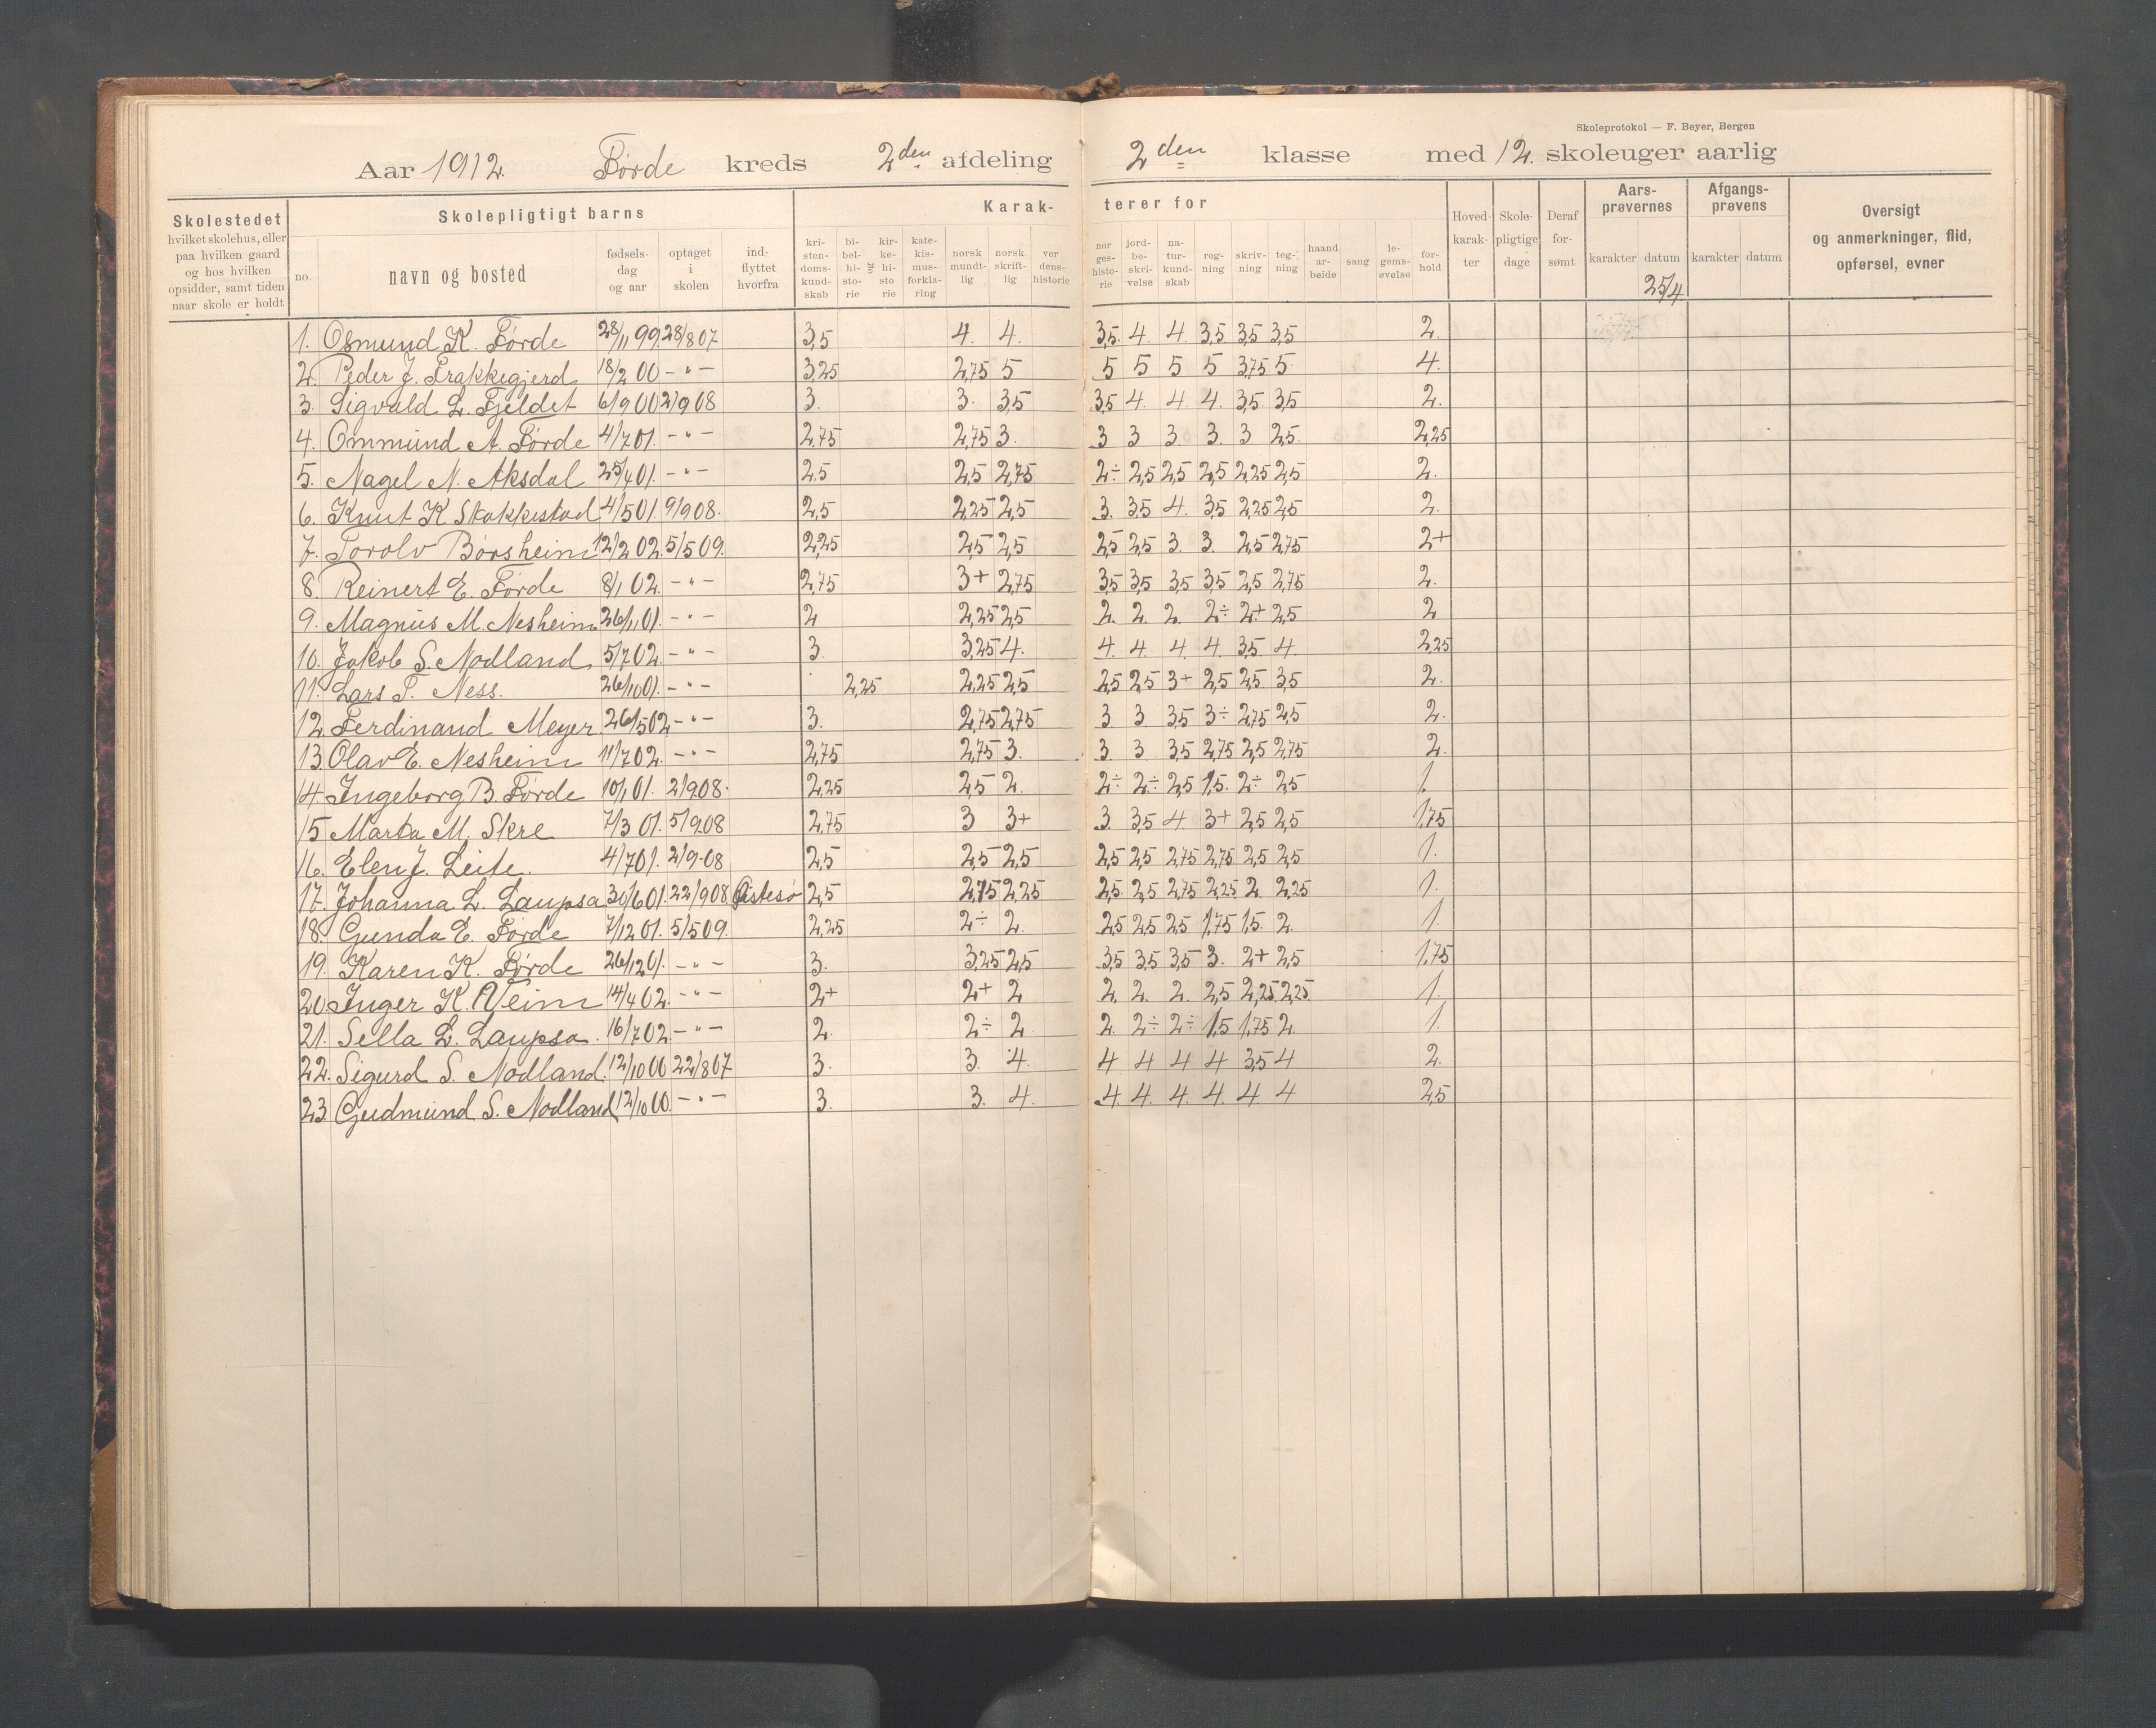 Skoleprotokol — F. Beyer, Bergen
Aar 1912. Førde kreds 2den afdeling 2den klasse med 12. skoleuger aarlig
Skolestedet
hvilket skolehus, eller
paa hvilken gaard
og hos hvilken
opsidder, samt tiden
naar skole er holdt
Skolepligtigt barns
no.
navn og bosted
fødsels-
dag
og aar
optaget
i
skolen
ind-
flyttet
hvorfra
Karak-
terer for
kri-
sten-
doms-
kund-
skab
bi-
bel-
hi-
sto-
rie
og
kir-
ke-
hi-
sto
rie
kate-
kis-
mus-
forkla-
ring
norsk
mundt-
lig
norsk
skrift-
lig
ver
dens-
historie
nor
ges-
histo-
rie
jord-
be-
skri-
velse
na-
tur-
kund-
skab
reg-
ning
skriv-
ning
teg-
ning
haand
ar-
beide
sang
le-
gems-
øvelse
for-
hold
Hoved-
karak-
ter
Skole-
pligtige
dage
Deraf
for-
sømt
Aars-
prøvernes
karakter datum
25/4
Afgangs-
prøvens
karakter datum
Oversigt
og anmerkninger, flid,
opførsel, evner
1. Osmund K. Førde 28/11 99 28/8 07 3,5 4. 4. 3,5. 4. 4 3,5 3,5 3,5 2.
2. Peder J. Frakkegjerd 18/2 00 - " - 3,25 2,75 5 5 5 5 5 3,75 5. 4.
3. Sigvald L. Fjeldet 6/9 00 2/9 08 3. 3. 3,5 3,5 4. 4 4. 3,5 3,5 2.
4. Ommund A. Førde 4/7 01. - " - 2,75 2,75 3. 3 3 3. 3. 3 2,5. 2,25
5. Nagel N. Aksdal 25/4 01. - " - 2,5 2,5 2,75 2÷ 2,5 2,5 2,5 2,25 2,5 2.
6. Knut K Skakkestad 4/5 01. 9/9 08. 2,5 2,25 2,5 3. 3,5 4. 3,5 2,25 2,5 2.
7. Torolv Børsheim 12/2 02. 5/5 09. 2,25 2,5 2,5 2,5 2,5 3. 3. 2,5 2,75 2+
8. Reinert E. Førde 8/1 02. - " - 2,75 3+ 2,75 3,5 3,5 3,5 3,5 2,5 2,75 2.
9. Magnus M. Nesheim 26/11 01. - " - 2 2,25 2,5 2. 2. 2. 2÷ 2+ 2,5 2
10. Jakob S. Nodland 5/7 02. - " - 3. 3,25 4. 4. 4. 4. 4 3,5 4. 2,25
11. Lars T. Ness. 26/10 01. - " - 2,25 2,25 2,5 2,5 2,5 3+ 2,5 2,5 3,5 2.
12. Ferdinand Meyer 26/5 02 - " - 3. 2,75 2,75 3 3 3,5 3÷ 2,75 2,5 2.
13. Olav E. Nesheim 11/7 02. - " - 2,75 2,75 3. 3. 3 3,5 2,75 2,5 2,75 2.
14. Ingeborg B. Førde 10/1 01. 2/9 08. 2,25 2,5 2. 2÷ 2÷ 2,5 1,5. 2÷ 2,5 1.
15 Marta M. Skre 7/3 01. 5/9 08 2,75 3 3+ 3. 3,5 4. 3+ 2,5 2,5 1,75
16. Elen J. Leite. 4/7 01. 2/9-08 2,5 2,5 2,5 2,5 2,5 2,75 2,75 2,5 2,5 1.
17. Johanna L. Laupsa 30/6 01. 22/9 08 2,5 2,75 2,25 2,5 2,5 2,75 2,25 2. 2,25 1.
18. Gunda E. Førde 7/12 01. 5/5 09. 2,25 2÷ 2. 2,5 2,5 2,5 1,75 1,5. 2. 1.
19. Karen K. Førde 26/12 01. - " - 3. 3,25 2,5 3,5 3,5 3,5 3. 2+ 2,5 1,75
20. Inger K. Veim 14/4 02. - " - 2+ 2+ 2 2. 2. 2. 2,5 2,25 2,25 1.
21. Sella L. Laupsa. 16/7 02. - " - 2. 2÷ 2 2. 2÷ 2÷ 1,5 1,75 2. 1.
22. Sigurd S. Nodland. 12/10 00 22/8 07 3. 3. 4. 4 4 4 4 3,5 4 2.
23. Gudmund S. Nodland 12/10 00. - " - 3. 3. 4. 4. 4. 4. 4. 4. 4 2,5